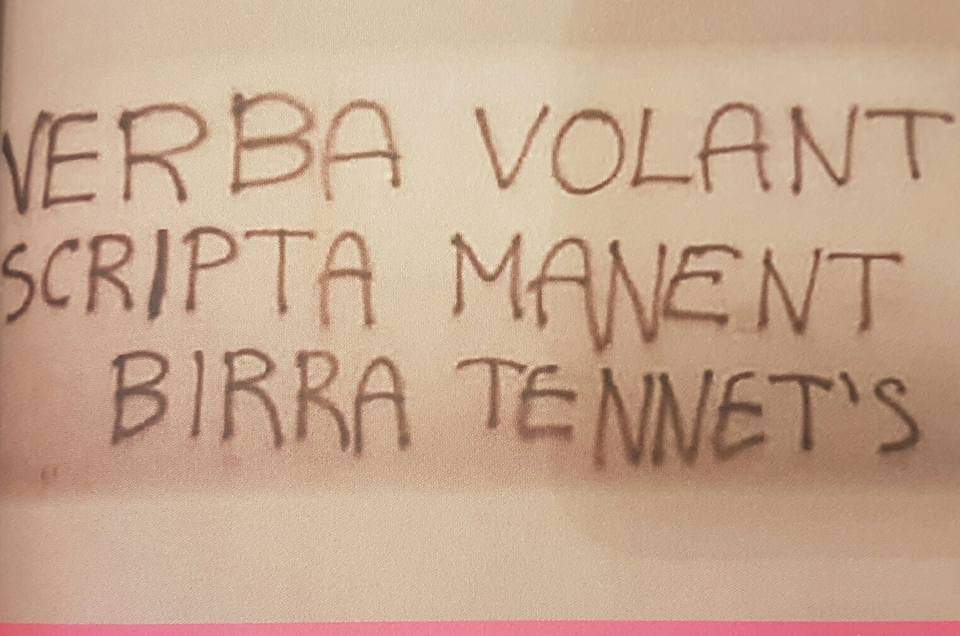 VERBA VOLANT
SCRIPTA MANENT
BIRRA TENNET'S